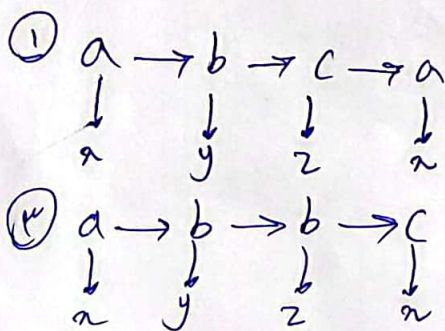 ① a → b → c → a
↓ ↓ ↓ ↓
x y z x
۳ a → b → b → c
↓ ↓ ↓ ↓
x y z x